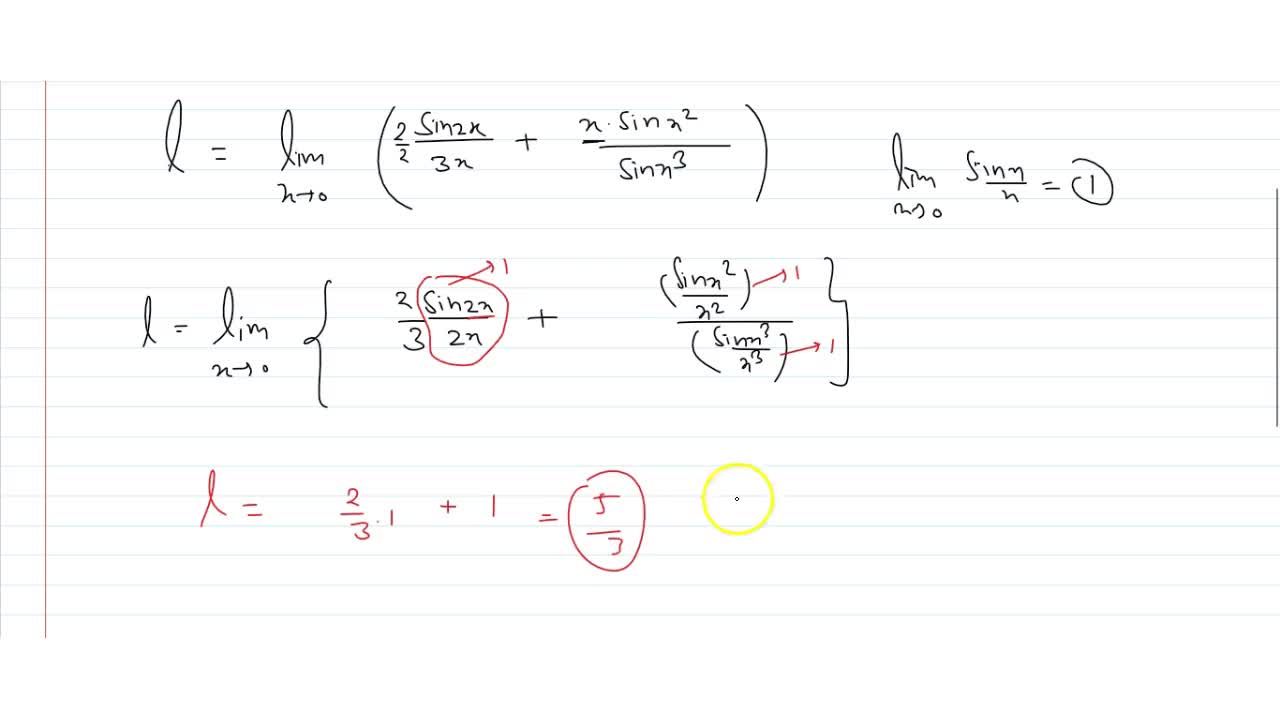 l = lim x→0 ( 2/2 sin2x/3x + x·sinx²/sinx³ )
lim x→0 sinx/x = 1
l = lim x→0 { 2/3 sin2x/2x → 1 + (sinx²/x²) → 1 / (sinx³/x³) → 1 }
l = 2/3 · 1 + 1 = 5/3